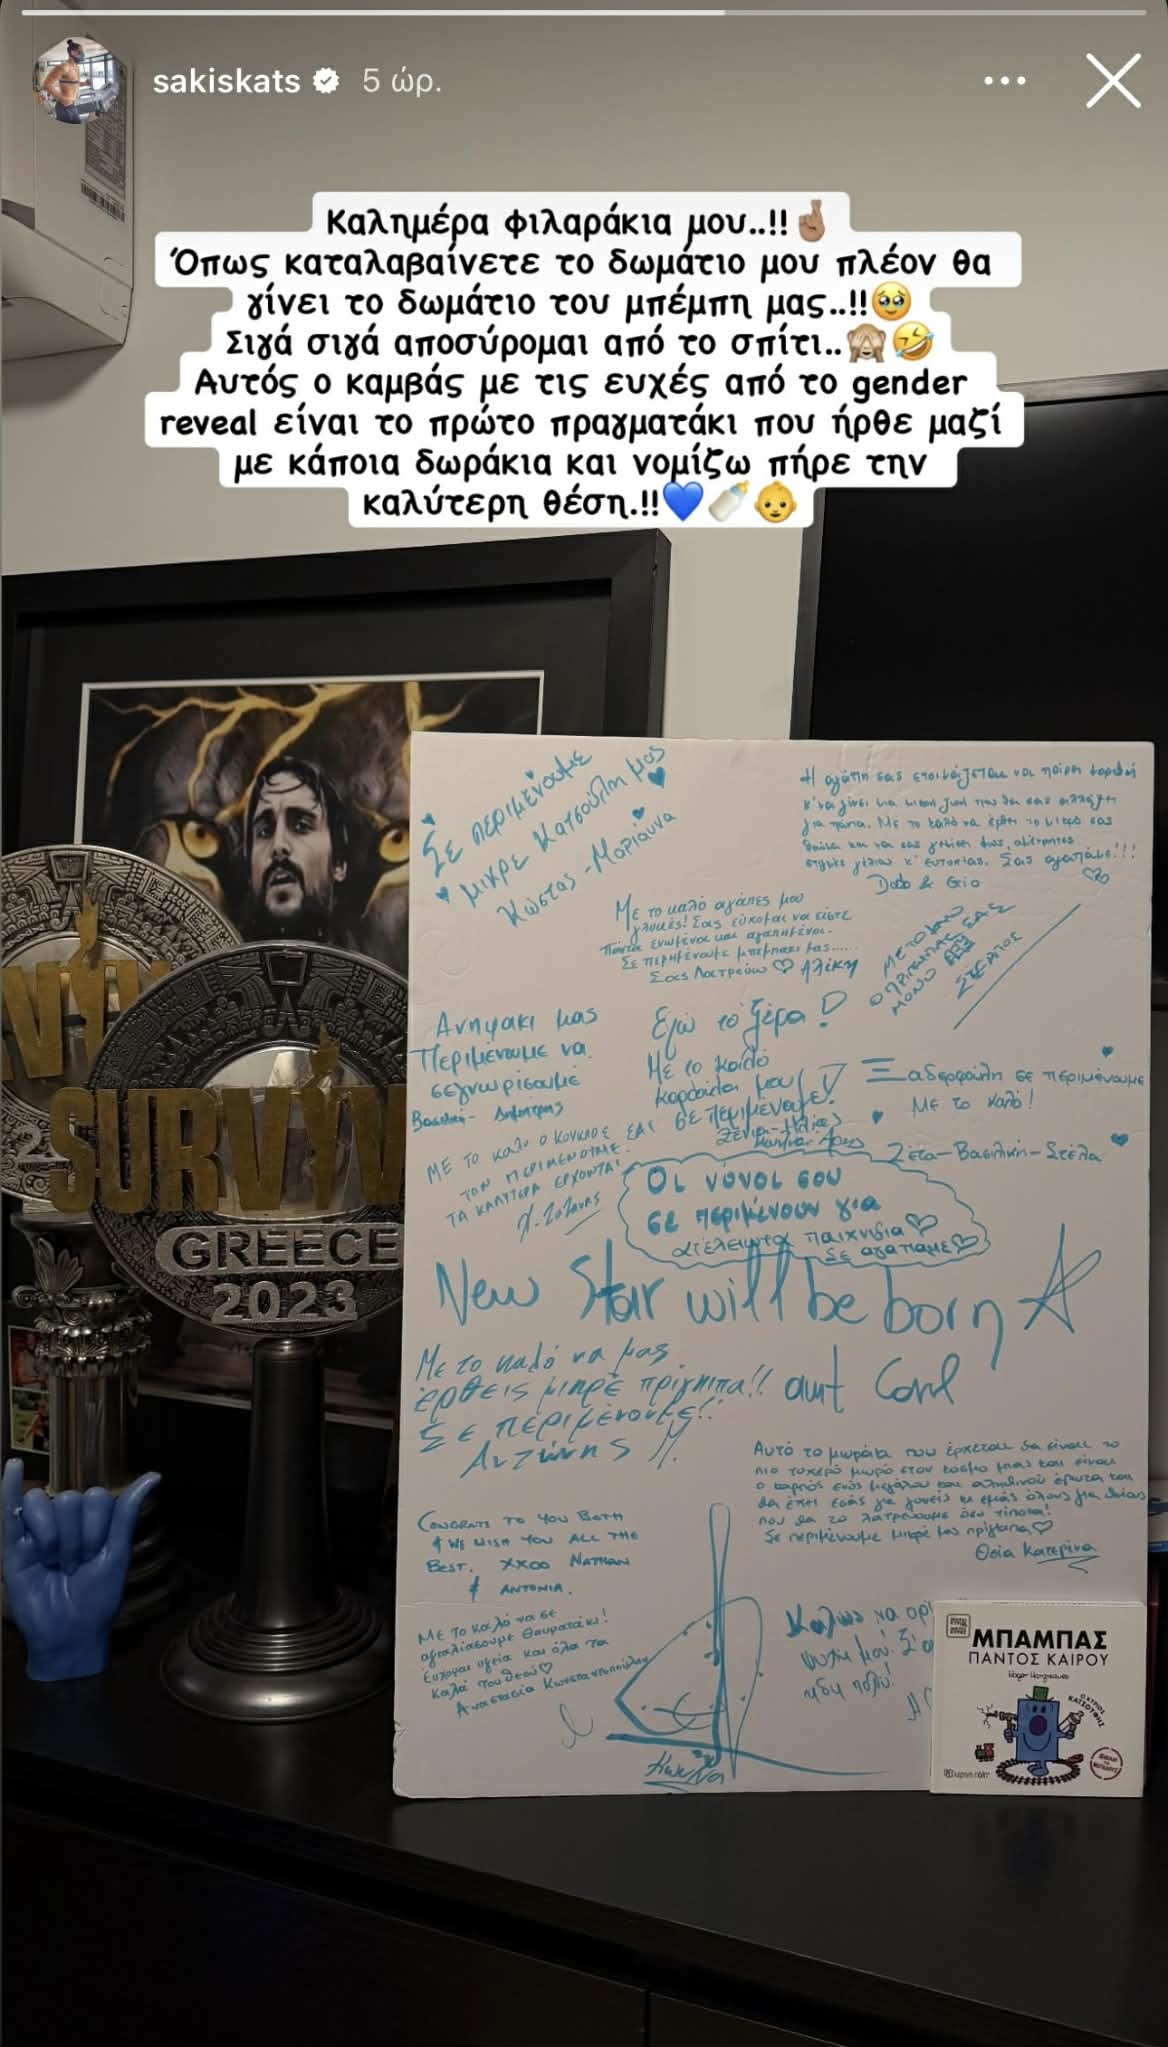 sakiskats 5 ώρ.
Καλημέρα φιλαράκια μου..!!🤞🏽
Όπως καταλαβαίνετε το δωμάτιο μου πλέον θα
γίνει το δωμάτιο του μπέμπη μας..!!🥹
Σιγά σιγά αποσύρομαι από το σπίτι..🙈🤣
Αυτός ο καμβάς με τις ευχές από το gender
reveal είναι το πρώτο πραγματάκι που ήρθε μαζί
με κάποια δωράκια και νομίζω πήρε την
καλύτερη θέση.!!💙🍼👶
Σε περιμένουμε
μικρέ Κατσούλη μας
Κώστας - Μαριάννα
Η αγάπη σας ετοιμάζεται να πάρει μορφή
για πάντα. Με το καλό να έρθει το μικρό σας
Σας αγαπάμε!!!
Με το καλό αγάπες μου
γλυκές! Σας εύχομαι να είστε
πάντα ενωμένοι και αγαπημένοι.
Σε περιμένουμε μπεμπάκι μας......
Σας Λατρεύω Αλίκη
ΜΕ ΤΟ ΚΑΛΟ
Ο ΠΡΙΓΚΙΠΑΣ ΣΑΣ
ΜΟΝΟ
Ανηψάκι μας
Περιμένουμε να
σε γνωρίσουμε
Βασιλική - Δημήτρης
Εγώ το ξέρα!
Με το καλό
καρδούλα μου!
σε περιμένουμε!
Ξαδερφούλη σε περιμένουμε
Με το καλό!
Ζέτα-Βασιλική-Στέλα
ΜΕ ΤΟ ΚΑΛΟ Ο ΚΟΥΚΛΟΣ ΣΑΣ
ΤΟΝ ΠΕΡΙΜΕΝΟΥΜΕ
ΤΑ ΚΑΛΥΤΕΡΑ ΕΡΧΟΝΤΑΙ
Οι νονοί σου
σε περιμένουν για
ατέλειωτα παιχνίδια
Σε αγαπάμε
New Star will be born
Με το καλό να μας
έρθεις μικρέ πρίγκιπα!!
Σε περιμένουμε!!
Αντώνης Μ.
aunt
Αυτό το μωράκι που έρχεται θα είναι το
πιο τυχερό μωρό στον κόσμο μιας και είναι
ο καρπός ενός μεγάλου και αληθινού έρωτα και
θα έχει εσάς για γονείς κι εμάς όλους για θείους
που θα το λατρεύουμε όσο τίποτα!
Σε περιμένουμε μικρέ μας πρίγκιπα
Θεία Κατερίνα
CONGRATS TO YOU BOTH
& WE WISH YOU ALL THE
BEST. XXOO NATHAN
& ANTONIA.
Με το καλό να σε
αγκαλιάσουμε θαυματάκι!
Εύχομαι υγεία και όλα τα
καλά του θεού
Αναστασία Κωνσταντοπούλου
SURVIV
GREECE
2023
ΜΠΑΜΠΑΣ
ΠΑΝΤΟΣ ΚΑΙΡΟΥ
Roger Hargreaves
Ο ΚΥΡΙΟΣ
ΚΑΤΣΟΥΦΗΣ